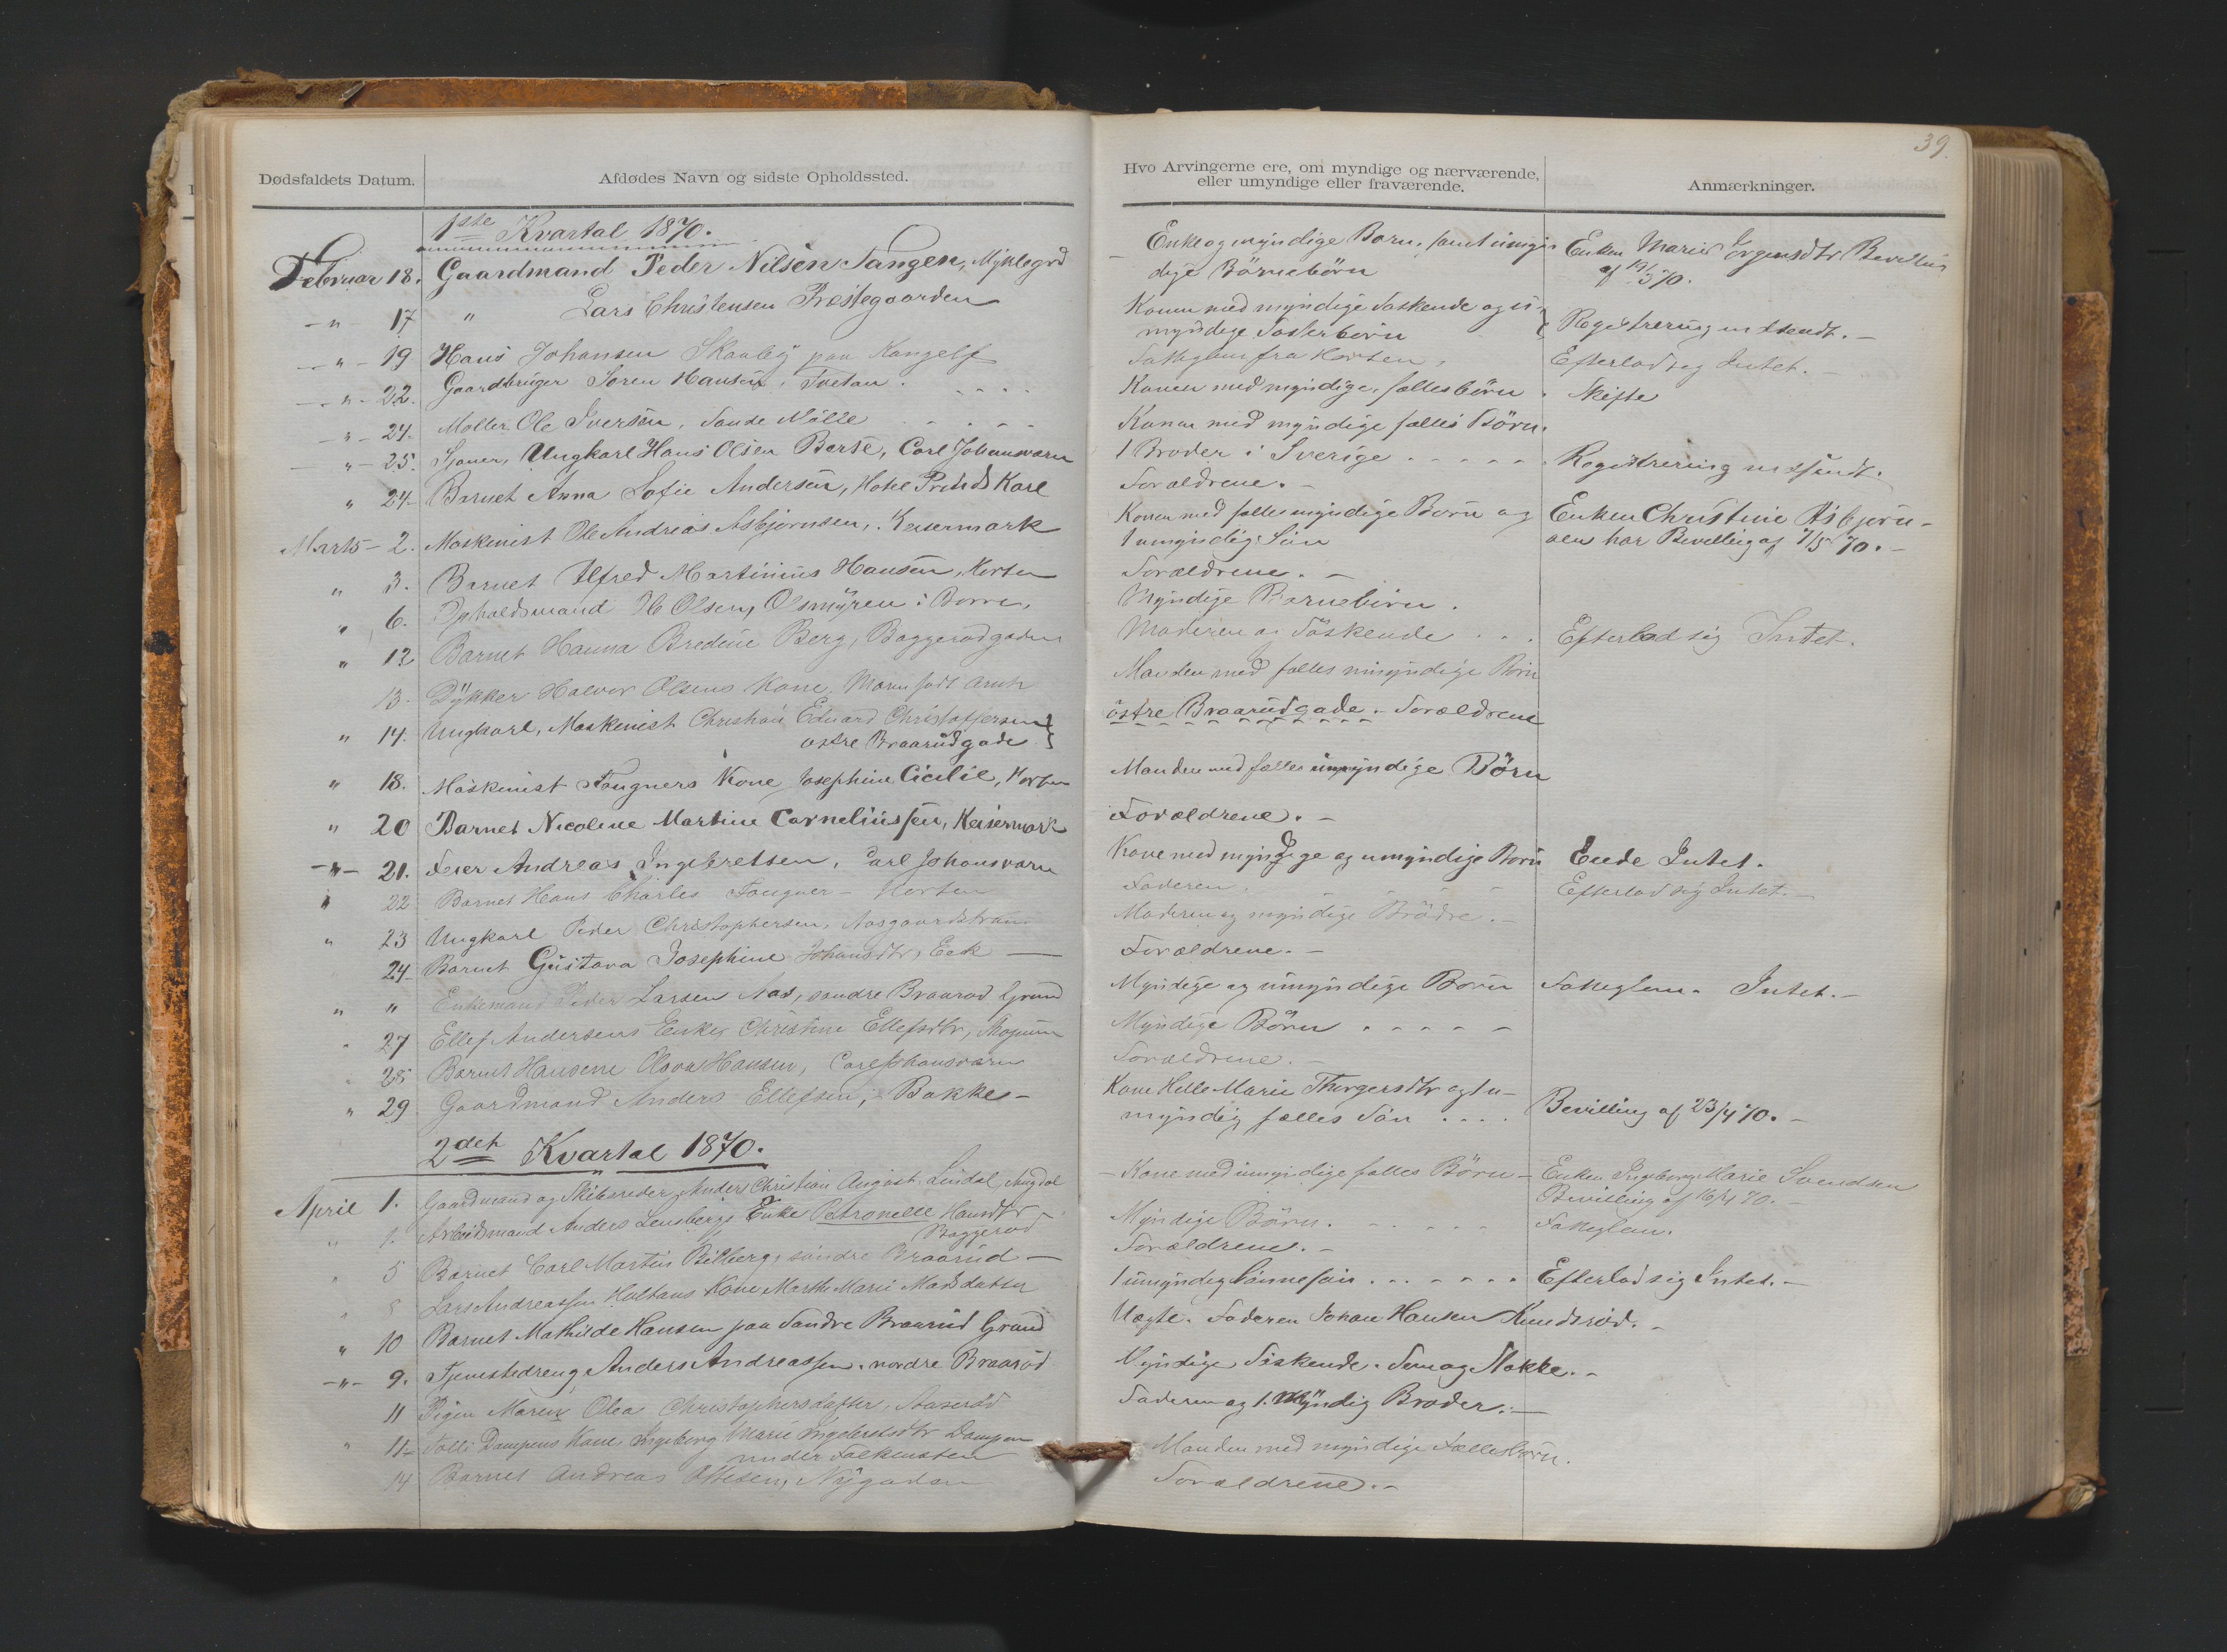 39.
Dødsfaldets Datum.
Afdødes Navn og sidste Opholdssted.
Hvo Arvingerne ere, om myndige og nærværende,
eller umyndige eller fraværende.
Anmærkninger.
1ste Kvartal 1870.
Februar 18. Gaardmand Peder Nilsen Tangen, Myklegrd
Enke og myndige Born, samt umyn-
dige Börnebörn
Enken Marie Jörgensdtr Bevilling
-"- 17 " Lars Christensen Præstegaarden
Konen med myndige Söskende og u-
myndige Söskerbörn
Registrering indsendt.-
-"- 19 Hans Johansen Skauby paa Kangelf
fra Horten,
Efterlod sig Intet.-
-"- 22. Gaardbruger Sören Hansen, Tvetan.
Konen med myndige, fællesbörn
Skifte
-"- 24. Møller Ole Iversen, Sande Mölle
Konen med myndige fælles Börn.
-"- 25. Ungkarl Hans Olsen Berte, Carl Johansværn
1 Broder i Sverige
Registrering indsendt.
" 24- Barnet Anna Sofie Andersen, Hotel Prinds Karl
Forældrene.-
Marts- 2. Maskinist Ole Andreas Asbjørnsen, Keisermark
Konen med fælles myndige Börn og
1 umyndig Sön
Enken Christine Asbjørn-
sen har Bevilling af 7/5 70.-
" 3. Barnet Alfred Martinius Hansen, Horten
Forældrene.-
" 6. Opholdsmand H Olsen, Olsmyren i Borre,
Myndige Barnebörn.
" 12 Barnet Hanna Bredine Berg, Baggerødgaden
Moderen og Söskende
Efterlod sig Intet.
13. Dykker Halvor Olsens Kone, Maren født
Manden med fælles umyndige Börn
" 14. Ungkarl, Maskinist Christian Eduard Christofersen
østre Braarudgade
østre Braarudgade. Forældrene
" 18. Maskinist Fougners Kone Josephine Cicilie, Horten
Manden med fælles umyndige Börn
" 20 Barnet Nicoline Martine Corneliussen, Keisermark
Forældrene.-
-"- 21. Feier Andreas Ingebretsen, Carl Johansværn
Kone med myndige og umyndige Börn
Eiede Intet.
" 22 Barnet Hans Charles Fougner- Horten
Faderen.
Efterlod sig Intet.-
" 23 Ungkarl Peder Christophersen, Aasgaardstrand
Moderen og myndige Brödre.-
24- Barnet Gustava Josephine Johansdtr, Eek
Forældrene.-
" " Enkemand Peder Larsen Aas, söndre Braarød Grund
Myndige og umyndige Börn
Fatteglem. Intet.-
" 27 Ellef Andersens Enke, Christine Ellefsdtr,
Myndige Börn
" 28 Barnet Hansene Olava Hansen, Carl Johansværn
Forældrene.-
" 29 Gaardmand Anders Ellefsen, Bakke-
Kone Helle Marie Thorgersdtr og 1 u-
myndig fælles Sön
Bevilling af 23/4 70.-
2det Kvartal 1870.
April 1. Gaardmand og Skibsreder Anders Christian August Lindal, Augdal
- Kone med umyndige fælles Börn-
Enken Ingeborg Marie Svendsen
Bevilling af 16/4 70.-
" 1. Arbeidsmand Anders Lensbergs Enke Petronelle Hansdtr
Baggerød
Myndige Börn.
Fatteglem.
" 5 Barnet Carl Martin Bilberg, söndre Braarud-
Forældrene.-
" 8 Lars Andreassen Holtans Kone Marthe Marie Madsdatter
1 umyndig Sönnesön
Efterlod sig Intet.-
" 10 Barnet Mathilde Hansen paa Søndre Braarud Grund
Uægte. Faderen Johan Hansen Knudsröd.-
-"- 9. Tjenestedreng Anders Andreassen. nordre Braaröd
Myndige Söskende. Sem og Stokke.-
11 Pigen Maren Olea Christophersdatter,
Faderen og 1. Myndig Broder.-
" 11- Dampens Kone, Ingeborg Marie Ingebretsdtr Dampen
under Falkensten
Manden med myndige Fællesbörn.
14 Barnet Andreas Ottesen, Nygaden
Forældrene.-